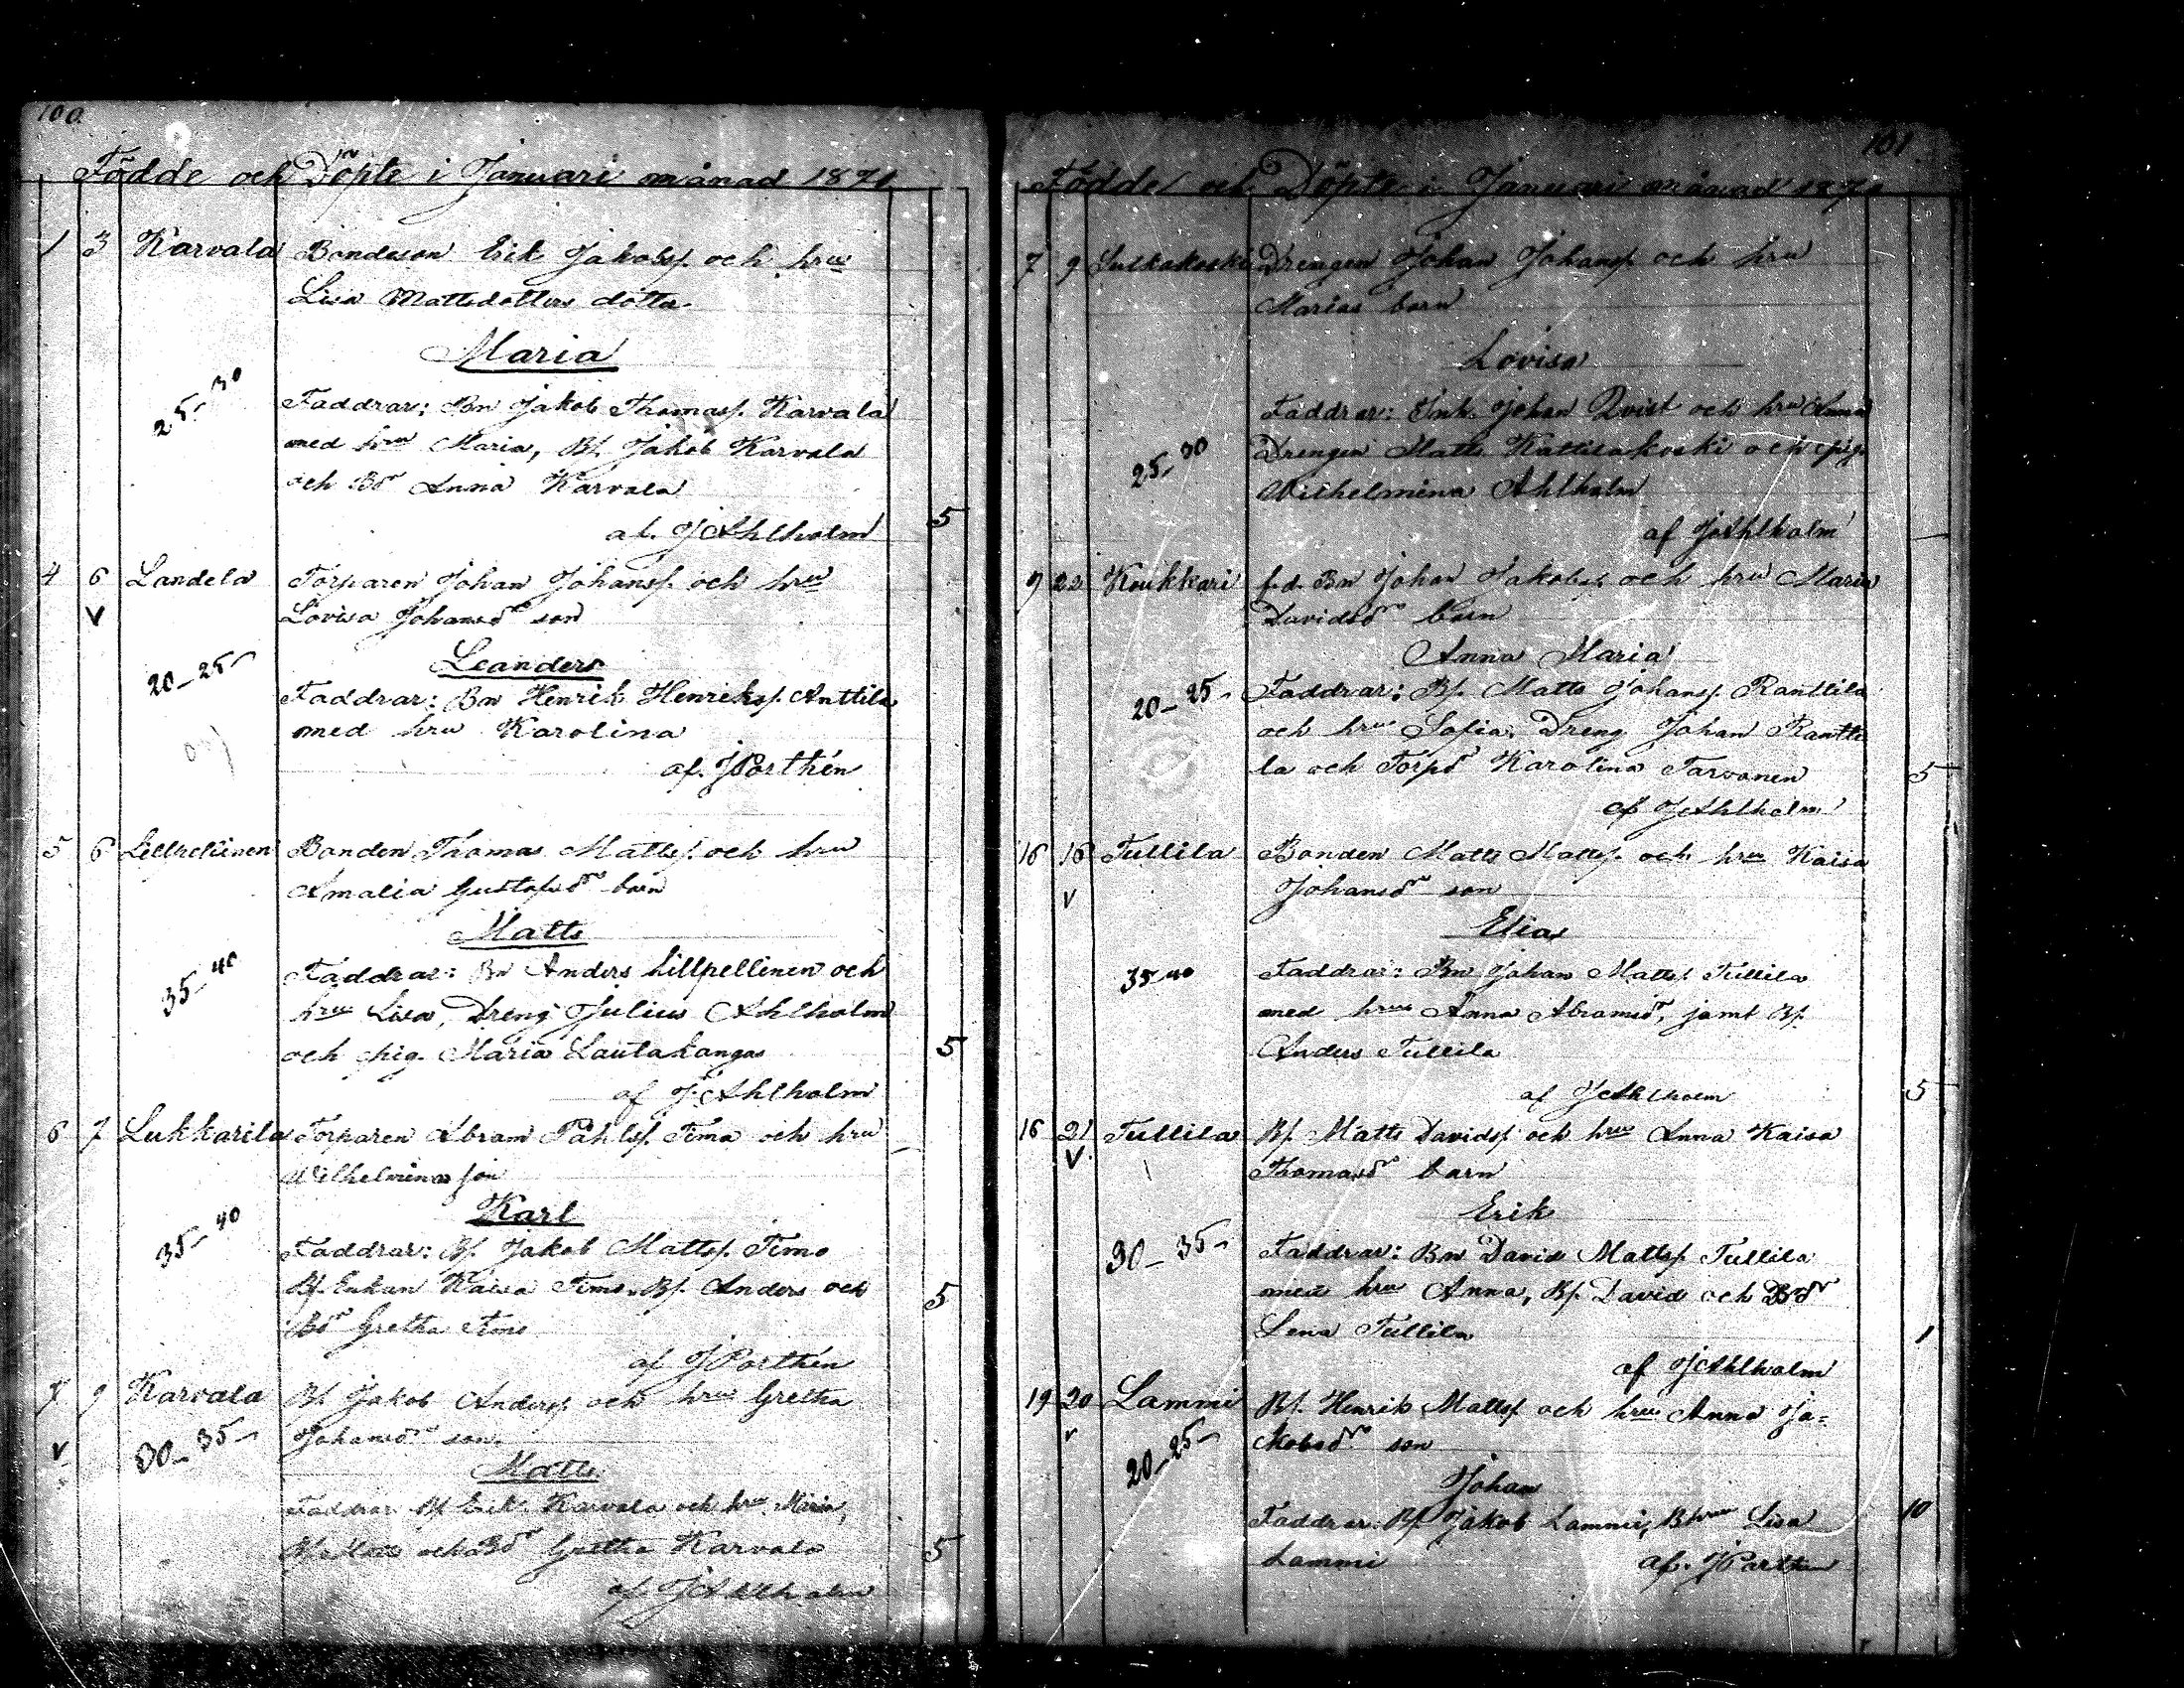 100
Födde och Döpte i Januari månad 1871
1 3 Karvala Bondeson Erik Jakobss. och hru
Lisa Mattsdotters dotter
Maria
25-30
Faddrar: Bn Jakob Thomass. Karvala
med hru Maria, Bs. Jakob Karvala
och Bdr Anna Karvala
af. J Ahlholm 5
4 6 Landela Torparen Johan Johanss. och hru
V Lovisa Johansdrs son
Leanders
20-25-
Faddrar: Bn Henrik Henrikss. Anttila
med hru Karolina
af. J Porthén
5 6 Lillpellinen Bonden Thomas Mattss. och hru
Amalia Gustafsdrs barn
Matts
35-40
Faddrar: Bn Anders Lillpellinen och
hru Lisa, Dreng Julius Ahlholm
och pig. Maria Lautakangas 5
af J. Ahlholm
6 7 Lukkarila Torparen Abram Påhlss. Timo och hru
Wilhelminas son
Karl
35-40
Faddrar: Bs. Jakob Mattss. Timo
Bs. Enkan Kaisa Timo, Bs. Anders och 5
Bdr Gretha Timo
af J Porthén
7 9 Karvala Bs. Jakob Anderss. och hru Gretha
V 30-35- Johansdrs son
Matts
Faddrar Bs Erik Karvala och hru Maria,
och Bdr Gretha Karvala 5
af J Ahlholm
101
Födde och Döpte i Januari månad 1871
7 9 Sulkakoski Drengen Johan Johanss. och hru
Marias barn
Lovisa
Faddrar: Inh. Johan Qvist och hru Anna
25-30 Drengen Matts Kattilakoski och pig.
Wilhelmina Ahlholm
af J Ahlholm
9 22 Koukkari f.d. Bn Johan Jakobss. och hru Maria
Davidsdrs barn
Anna Maria
20-25- Faddrar: Bs. Matts Johanss. Ranttila
och hru Sofia, Dreng Johan Rantti
la och Torpdr Karolina Tarvonen 5
af J Ahlholm
16 16 Tullila Bonden Matts Mattss. och hru Kaisa
V Johansdrs son
Elias
35-40 Faddrar: Bn Johan Mattss. Tullila
med hru Anna Abramsdr, jamt Bs.
Anders Tullila
af J Ahlholm 5
16 21 Tullila Bs. Matts Davidss. och hru Anna Kaisa
V Thomasdrs barn
Erik
30-35- Faddrar: Bn David Mattss. Tullila
med hru Anna, Bs. David och Bdr
Lena Tullila 1
af J Ahlholm
19 20 Lammi Bs. Henrik Mattss. och hru Anna Ja=
V kobsdrs son
20-25-
Johan
Faddrar: Bs. Jakob Lammi, Bhru Lisa 10
Lammi af. J Porthén